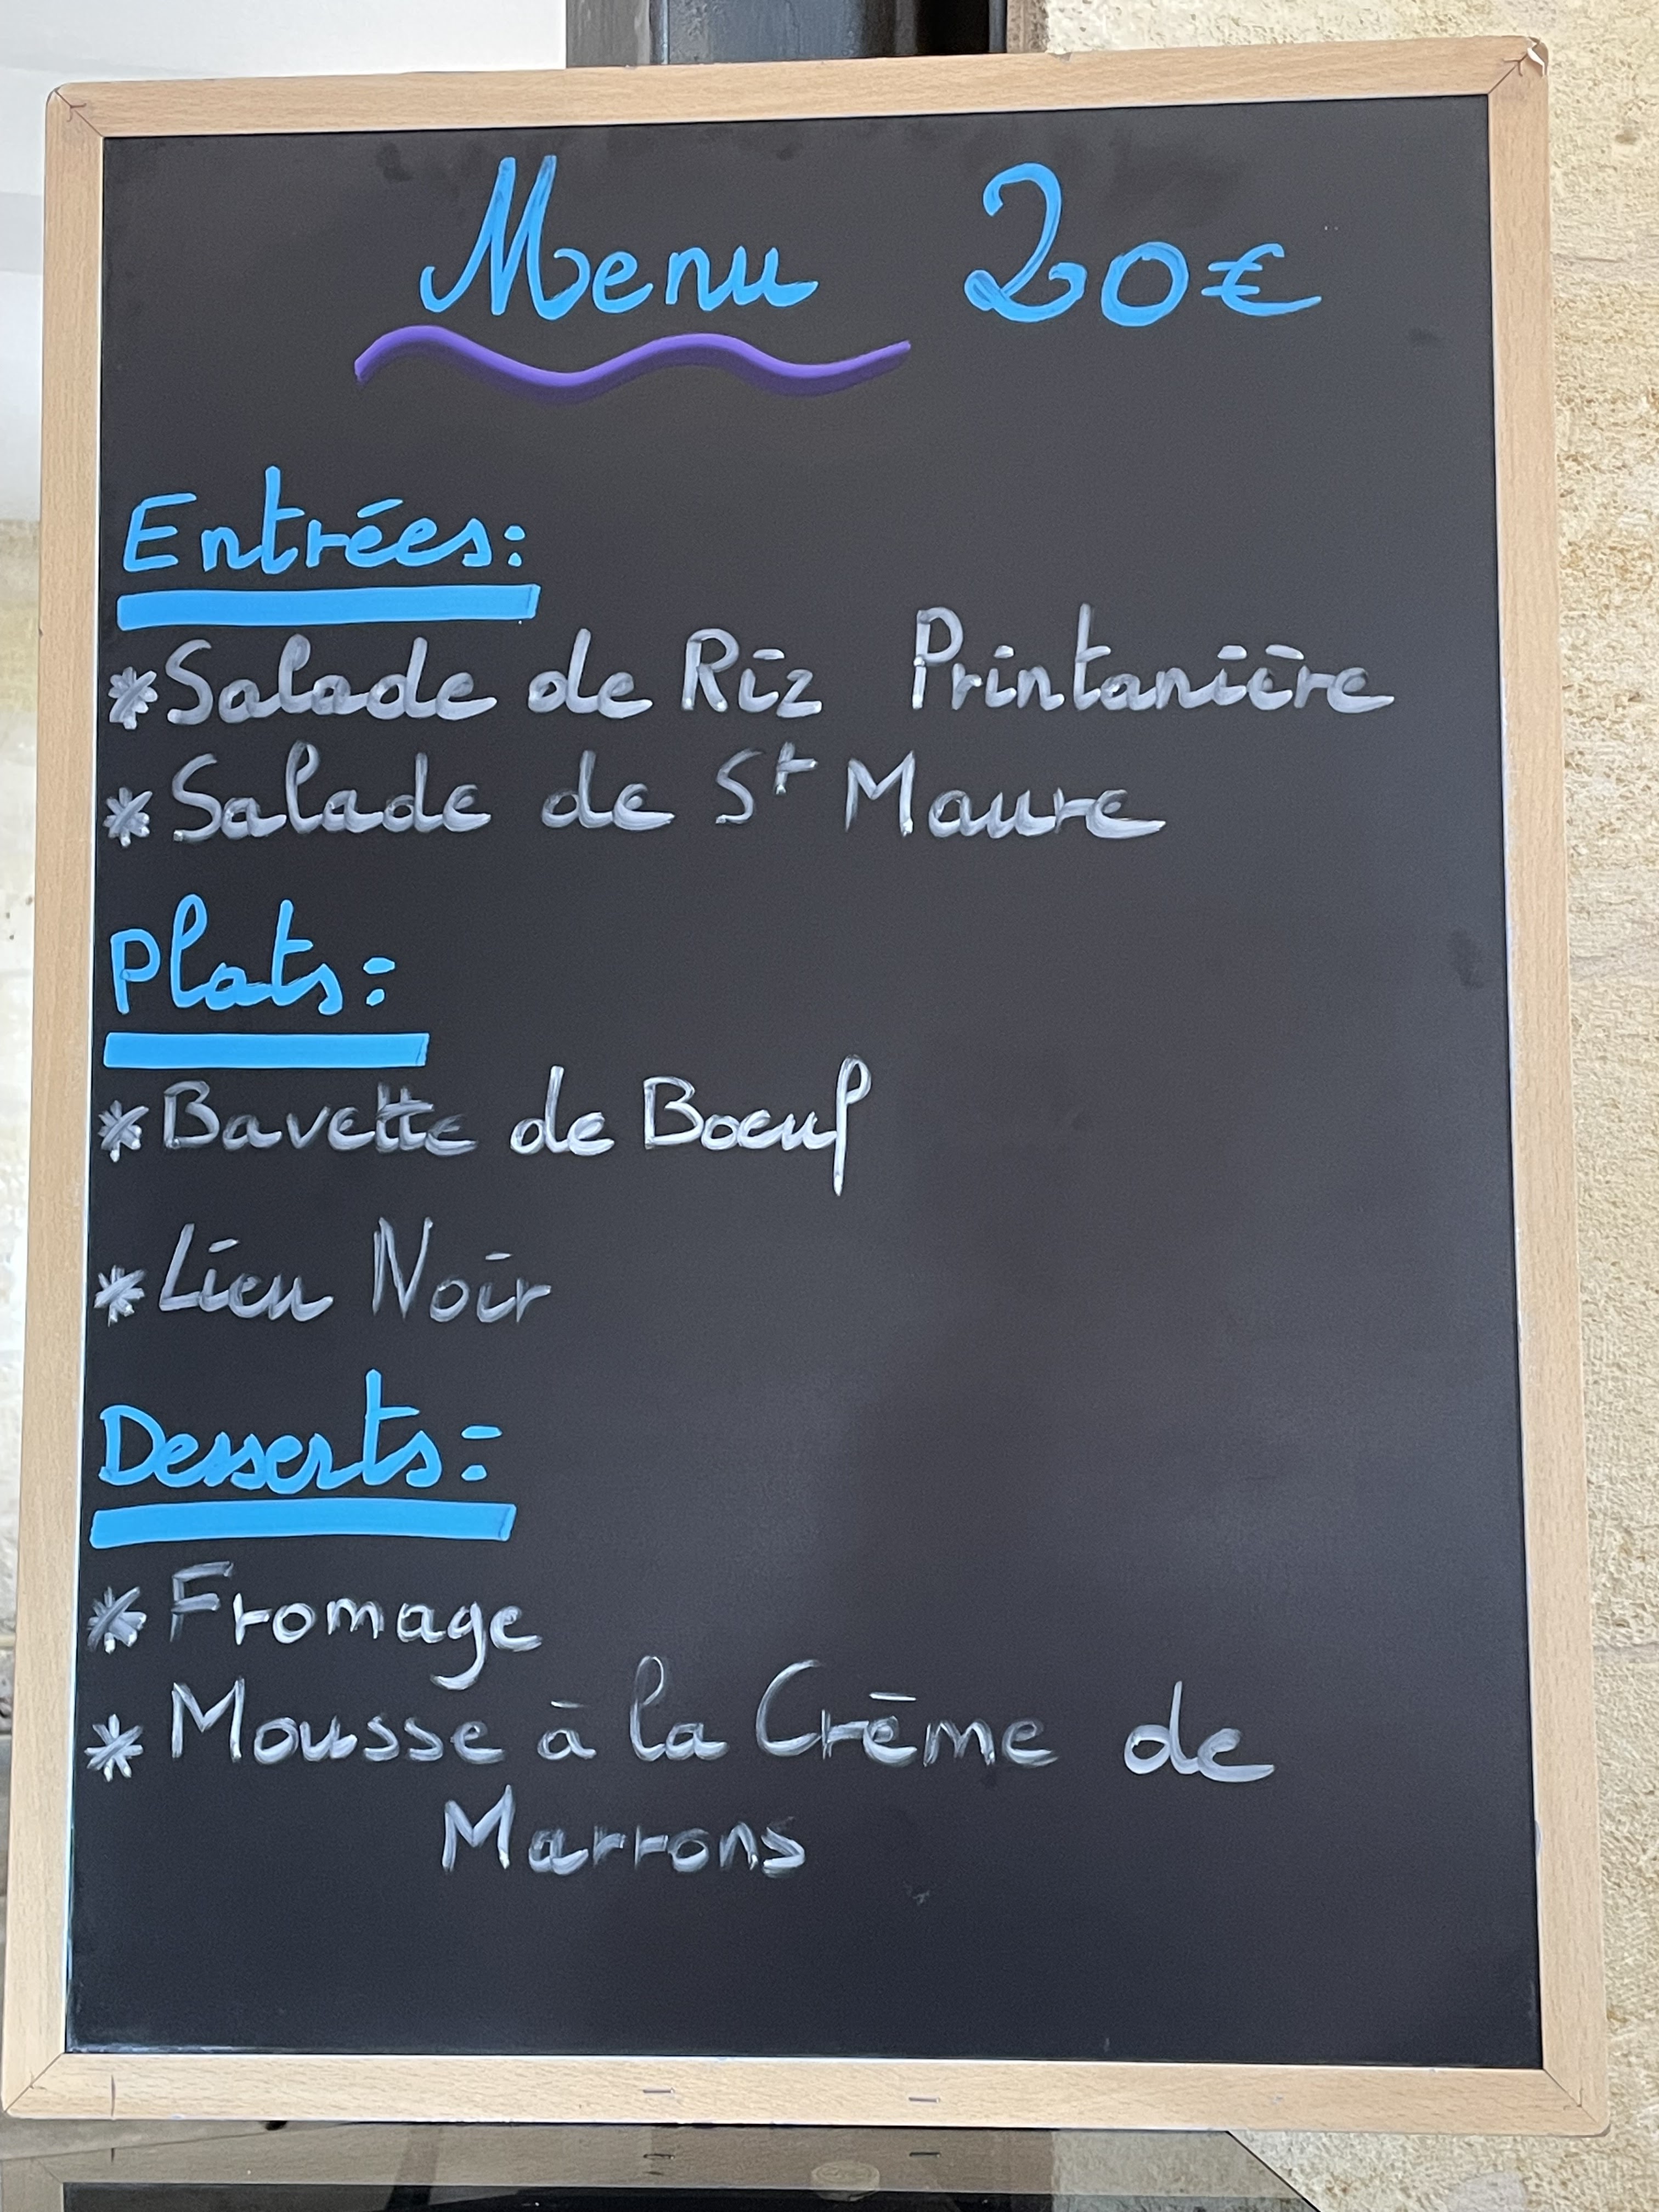 Menu 20€
Entrées:
*Salade de Riz Printanière
*Salade de St Maure
Plats:
*Bavette de Boeuf
*Lieu Noir
Desserts:
* Fromage
* Mousse à la Crème de
Marrons